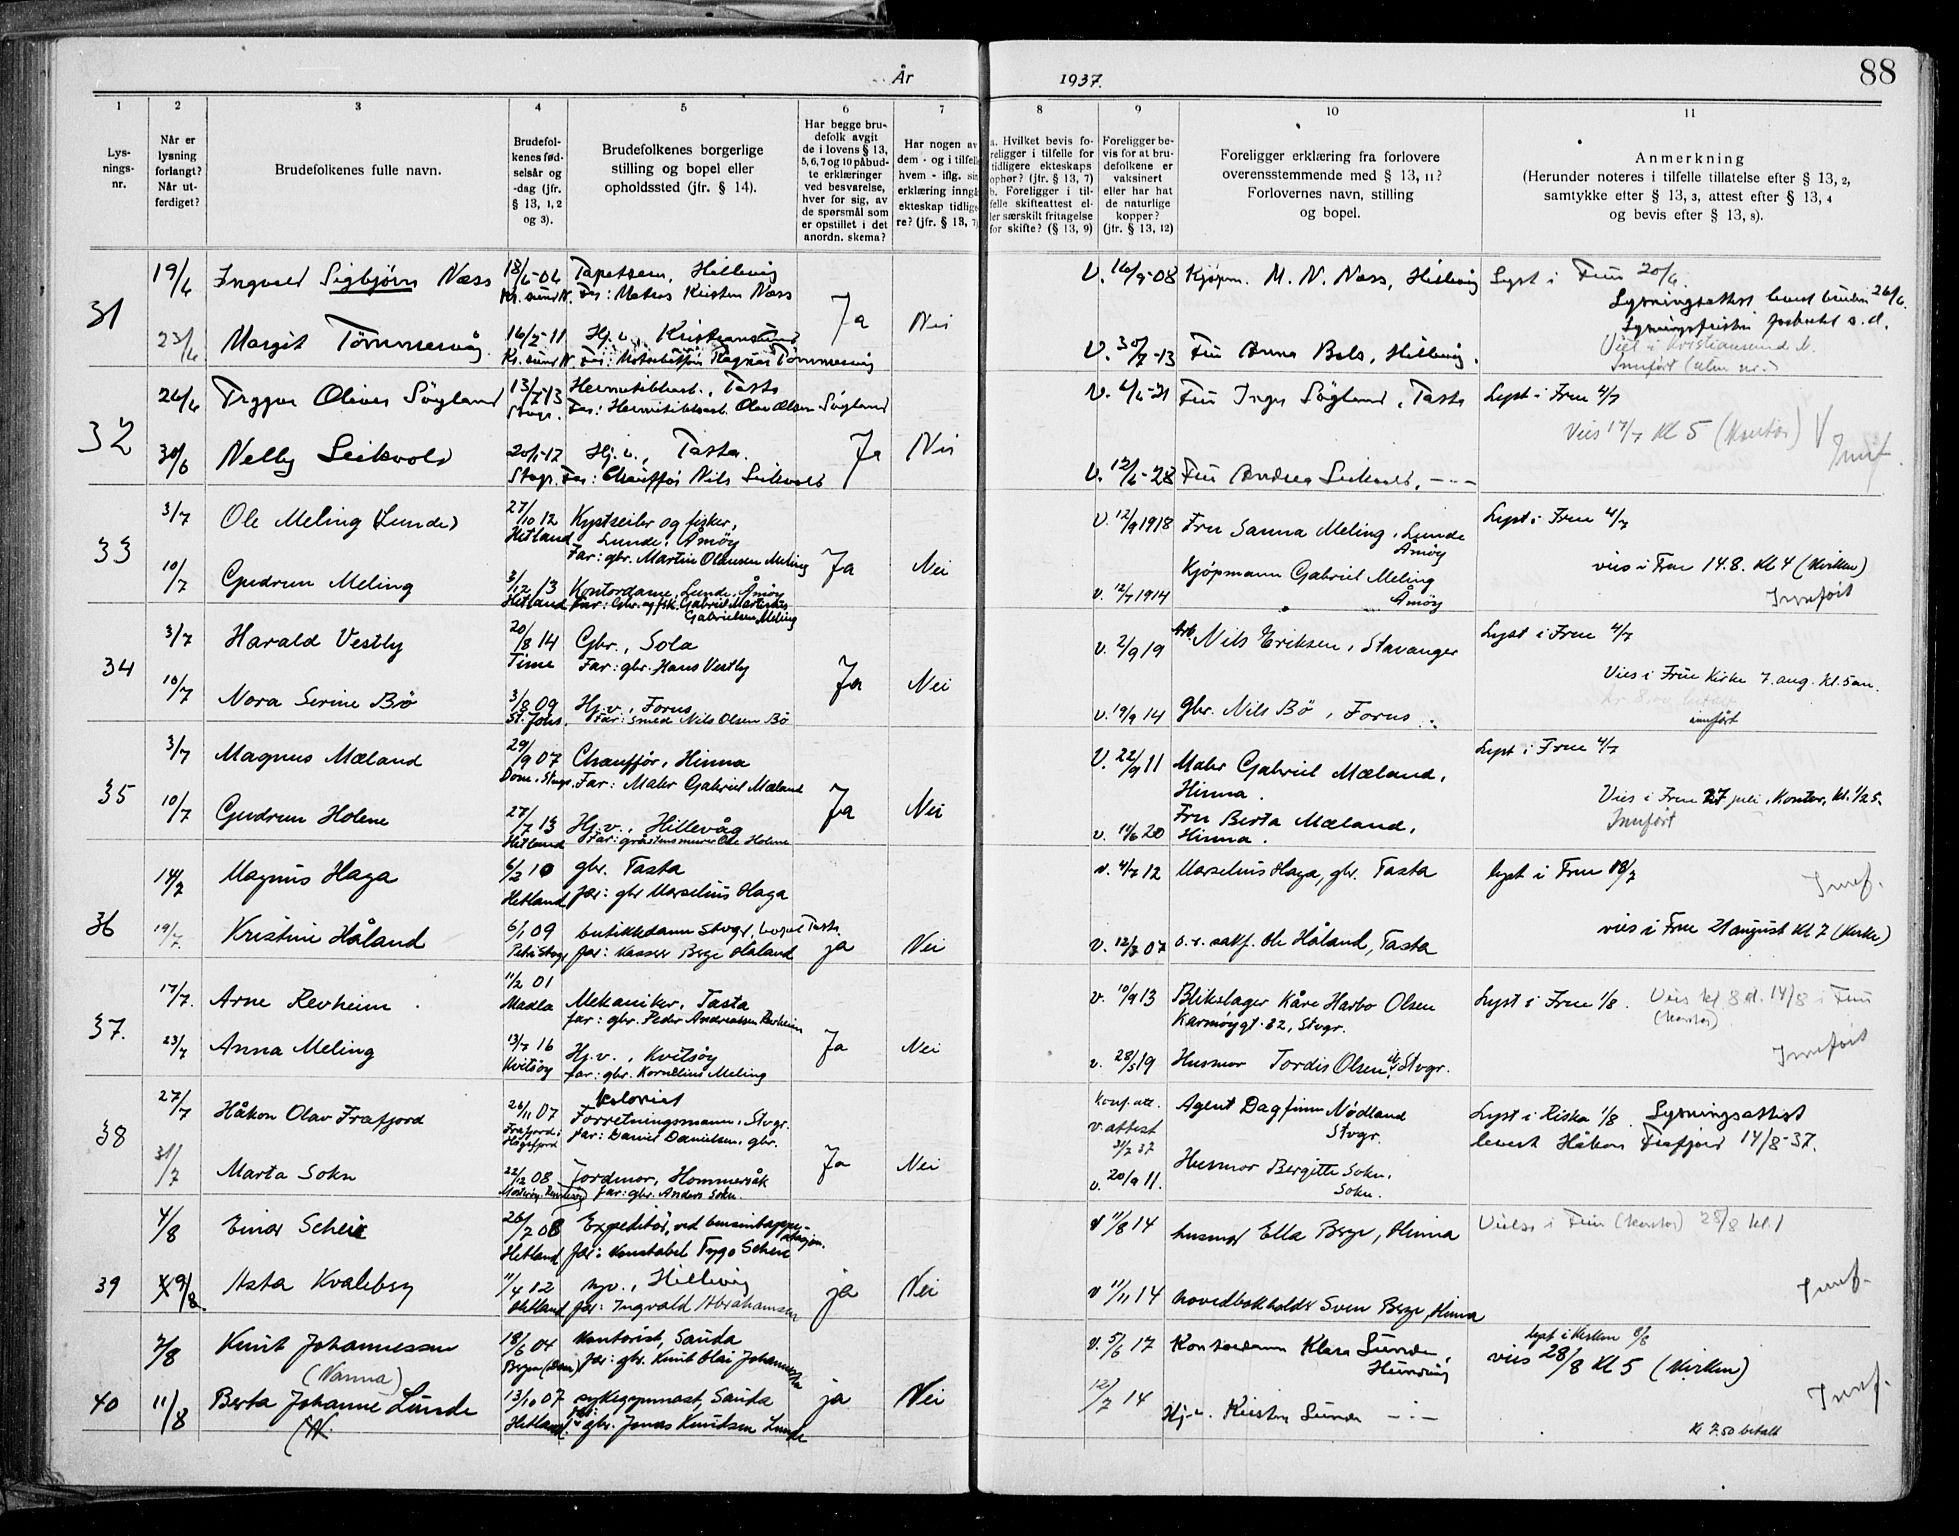 År 1937. 88
1 2 3 4 5 6 7 8 9 10 11
Lys-
nings-
nr.
Når er
lysning
forlangt?
Når ut-
ferdiget?
Brudefolkenes fulle navn.
Brudefol-
kenes fød-
selsår og
-dag (jfr.
§ 13, 1, 2
og 3).
Brudefolkenes borgerlige
stilling og bopel eller
opholdssted (jfr. § 14).
Har begge bru-
defolk avgit
de i lovens § 13,
5, 6, 7 og 10 påbud-
te erklæringer
ved besvarelse,
hver for sig, av
de spørsmål som
er opstillet i det
anordn. skema?
Har nogen av
dem - og i tilfelle
hvem - iflg. sin
erklæring inngå
ekteskap tidlige-
re? (jfr. § 13, 7)
a. Hvilket bevis fo-
religger i tilfelle for
tidligere ekteskaps
ophør? (jfr. § 13, 7)
b. Foreligger i til-
felle skifteattest el-
ler særskilt fritagelse
for skifte? (§ 13, 9)
Foreligger be-
vis for at bru-
defolkene er
vaksinert
eller har hat
de naturlige
kopper?
(jfr. § 13, 12)
Foreligger erklæring fra forlovere
overensstemmende med § 13, 11?
Forlovernes navn, stilling
og bopel.
Anmerkning
(Herunder noteres i tilfelle tillatelse efter § 13, 2,
samtykke efter § 13, 3, attest efter § 13, 4
og bevis efter § 13, 8).
31
19/6 Ingvald Sigbjørn Næss 18/6-04 Tapetserer, Hillevåg V. 16/9-08 Kjøpm. M. N. Næss, Hillevåg Lyst i Frue 20/6.
Kr.sund N. Far: Matros Kristen Næss
Ja Nei
Lysningsattest levert bruden 26/6.
23/6 Margit Tömmervåg 16/2-11 Hj. v., Kristiansund V. 30/7-13 Fru Anna Bols, Hillevåg.
Kr.sund N. Ragnar Tömmervåg
Viet i Kristiansund N.
Innført
32
26/6 Trygve Oliver Søyland 13/7-13 Hermetikkarb., Tasta V. 6/6-21 Fru Inger Søyland, Tasta Lyst i Frue 4/7
Stvgr. Far: Hermetikkarb. Olav Olsen Søyland
Vies 17/7 kl 5 (Kontor) V
Innf.
30/6 Nelly Leikvold 20/1-17 Hj. v., Tasta. Ja Nei V. 12/6-28 Fru Andrea Leikvold, -"-
Stvgr. Far: Chauffør Nils Leikvold
33
3/7 Ole Meling (Lunde) 27/10 12 Kystseiler og fisker, V. 12/9 1918 Fru Sanna Meling, Lunde Åmøy Lyst i Frue 4/7
Hetland Lunde, Åmøy
Far: gbr. Martin Olausen Meling Ja Nei
vies i Frue 14.8. kl 4 (Kirken)
10/7 Gudrun Meling 3/12 13 Kontordame, Lunde, Åmøy v. 12/7 1914 Kjøpmann Gabriel Meling Åmøy
Hetland Far: Gbr. og fisk. Gabriel Martinius
Gabrielsen Meling
Innført
34
3/7 Harald Vestly 20/8 14 Gbr., Sola v. 2/9 19 Arb. Nils Eriksen, Stavanger Lyst i Frue 4/7
Time Far: gbr. Hans Vestly Ja Nei
Vies i Frue Kirke 7. aug. kl. 5 em.
10/7 Nora Serine Bø 3/8 09 Hj.v., Forus v. 19/9 14 Gbr. Nils Bø, Forus
St. Johs. Far: Smed Nils Olsen Bø
innført
35
3/7 Magnus Mæland 29/9 07 Chauffør, Hinna V. 22/9 11 Maler Gabriel Mæland, Hinna. Lyst i Frue 4/7
Dom. Stvgr. Far: Maler Gabriel Mæland Ja Nei
Vies i Frue 27 juli, Kontor, kl. 1/2 5.
Innført
10/7 Gudrun Holene 27/7 13 Hj.v., Hillevåg v. 14/6 20 Fru Berta Mæland, Hinna.
Hetland Far: gråstensmurer Ole Holene
36
14/7 Magnus Haga 6/2 10 gbr. Tasta v. 4/7 12 Marselius Haga, gbr. Tasta lyst i Frue 18/7
Hetland far: gbr Marselius Haga
Innf.
19/7. Kristine Håland 6/1 09 butikkdame Stvgr, bopel Tasta. ja Nei V. 12/3 07 o.r. sakf. Ole Håland, Tasta
Petri Stvgr far: kasser Berge Håland
vies i Frue 21 august kl 7 (Kirke)
37.
17/7. Arne Revheim 11/2 01 Mekaniker, Tasta v. 10/9 13 Blikslager Kåre Harbo Olsen Karmøygt. 32, Stvgr. Lyst i Frue 1/8. Vies kl 8 d. 14/8 i Frue (Kontor)
Madla far: gbr. Peder Andreassen Revheim
23/7 Anna Meling 13/7 16 Hj.v., Kvitsøy Ja Nei v. 28/5 19 Husmor Tordis Olsen, Stvgr.
Kvitsøy far: gbr. Kornelius Meling
Innført
38
27/7 Håkon Olav Frafjord 26/11 07 Kolonial Forretningsmann, Stvgr. Konf.att. v. attest 31/7 37 Agent Dagfinn Nødland Stvgr. Lyst i Riska 1/8 Lysningsattest
Frafjord i Høgsfjord far: Daniel Danielsen, gbr.
levert Håkon Frafjord 14/8-37.
31/7 Marta Sokn 22/12 08 Jordmor, Hommersåk Ja Nei v. 20/9 11. Husmor Bergitte Sokn, Sokn.
Mosterøy, Rennesøy far: gbr. Anders Sokn.
39
4/8 Einar Scheie 26/7 08 Expeditør, ved bensintappe-stasjon. v 11/8 14 husmor Ella Berge, Hinna Vielse i Frue (Kontor) 25/8 kl. 1
Hetland far: konstabel Tygo Scheie
9/8. Asta Kvaleberg 11/4 12 syv., Hillevåg ja Nei v 11/11 14 hovedbokholder Sven Berge, Hinna
Hetland far: Ingvald Abrahamsen
Innf.
40
7/8 Knut Johannessen 18/6 04 kontorist, Sauda v. 5/6 17 Kontordame Klara Lunde, Hundvåg lyst i Kirken 8/8
Bergen (Dom) far: gbr. Knut Olai Johannessen
vies 28/8 kl 5 (Kirken)
(Nanna)
11/8 Berta Johanne Lunde 13/10 07 sykegymnast, Sauda ja Nei 12/7 14 Hj.v. Kirsten Lunde -"-
Hetland. far: gbr. Jonas Knudsen Lunde
(N.
Innf.
Kr 7.50 betalt